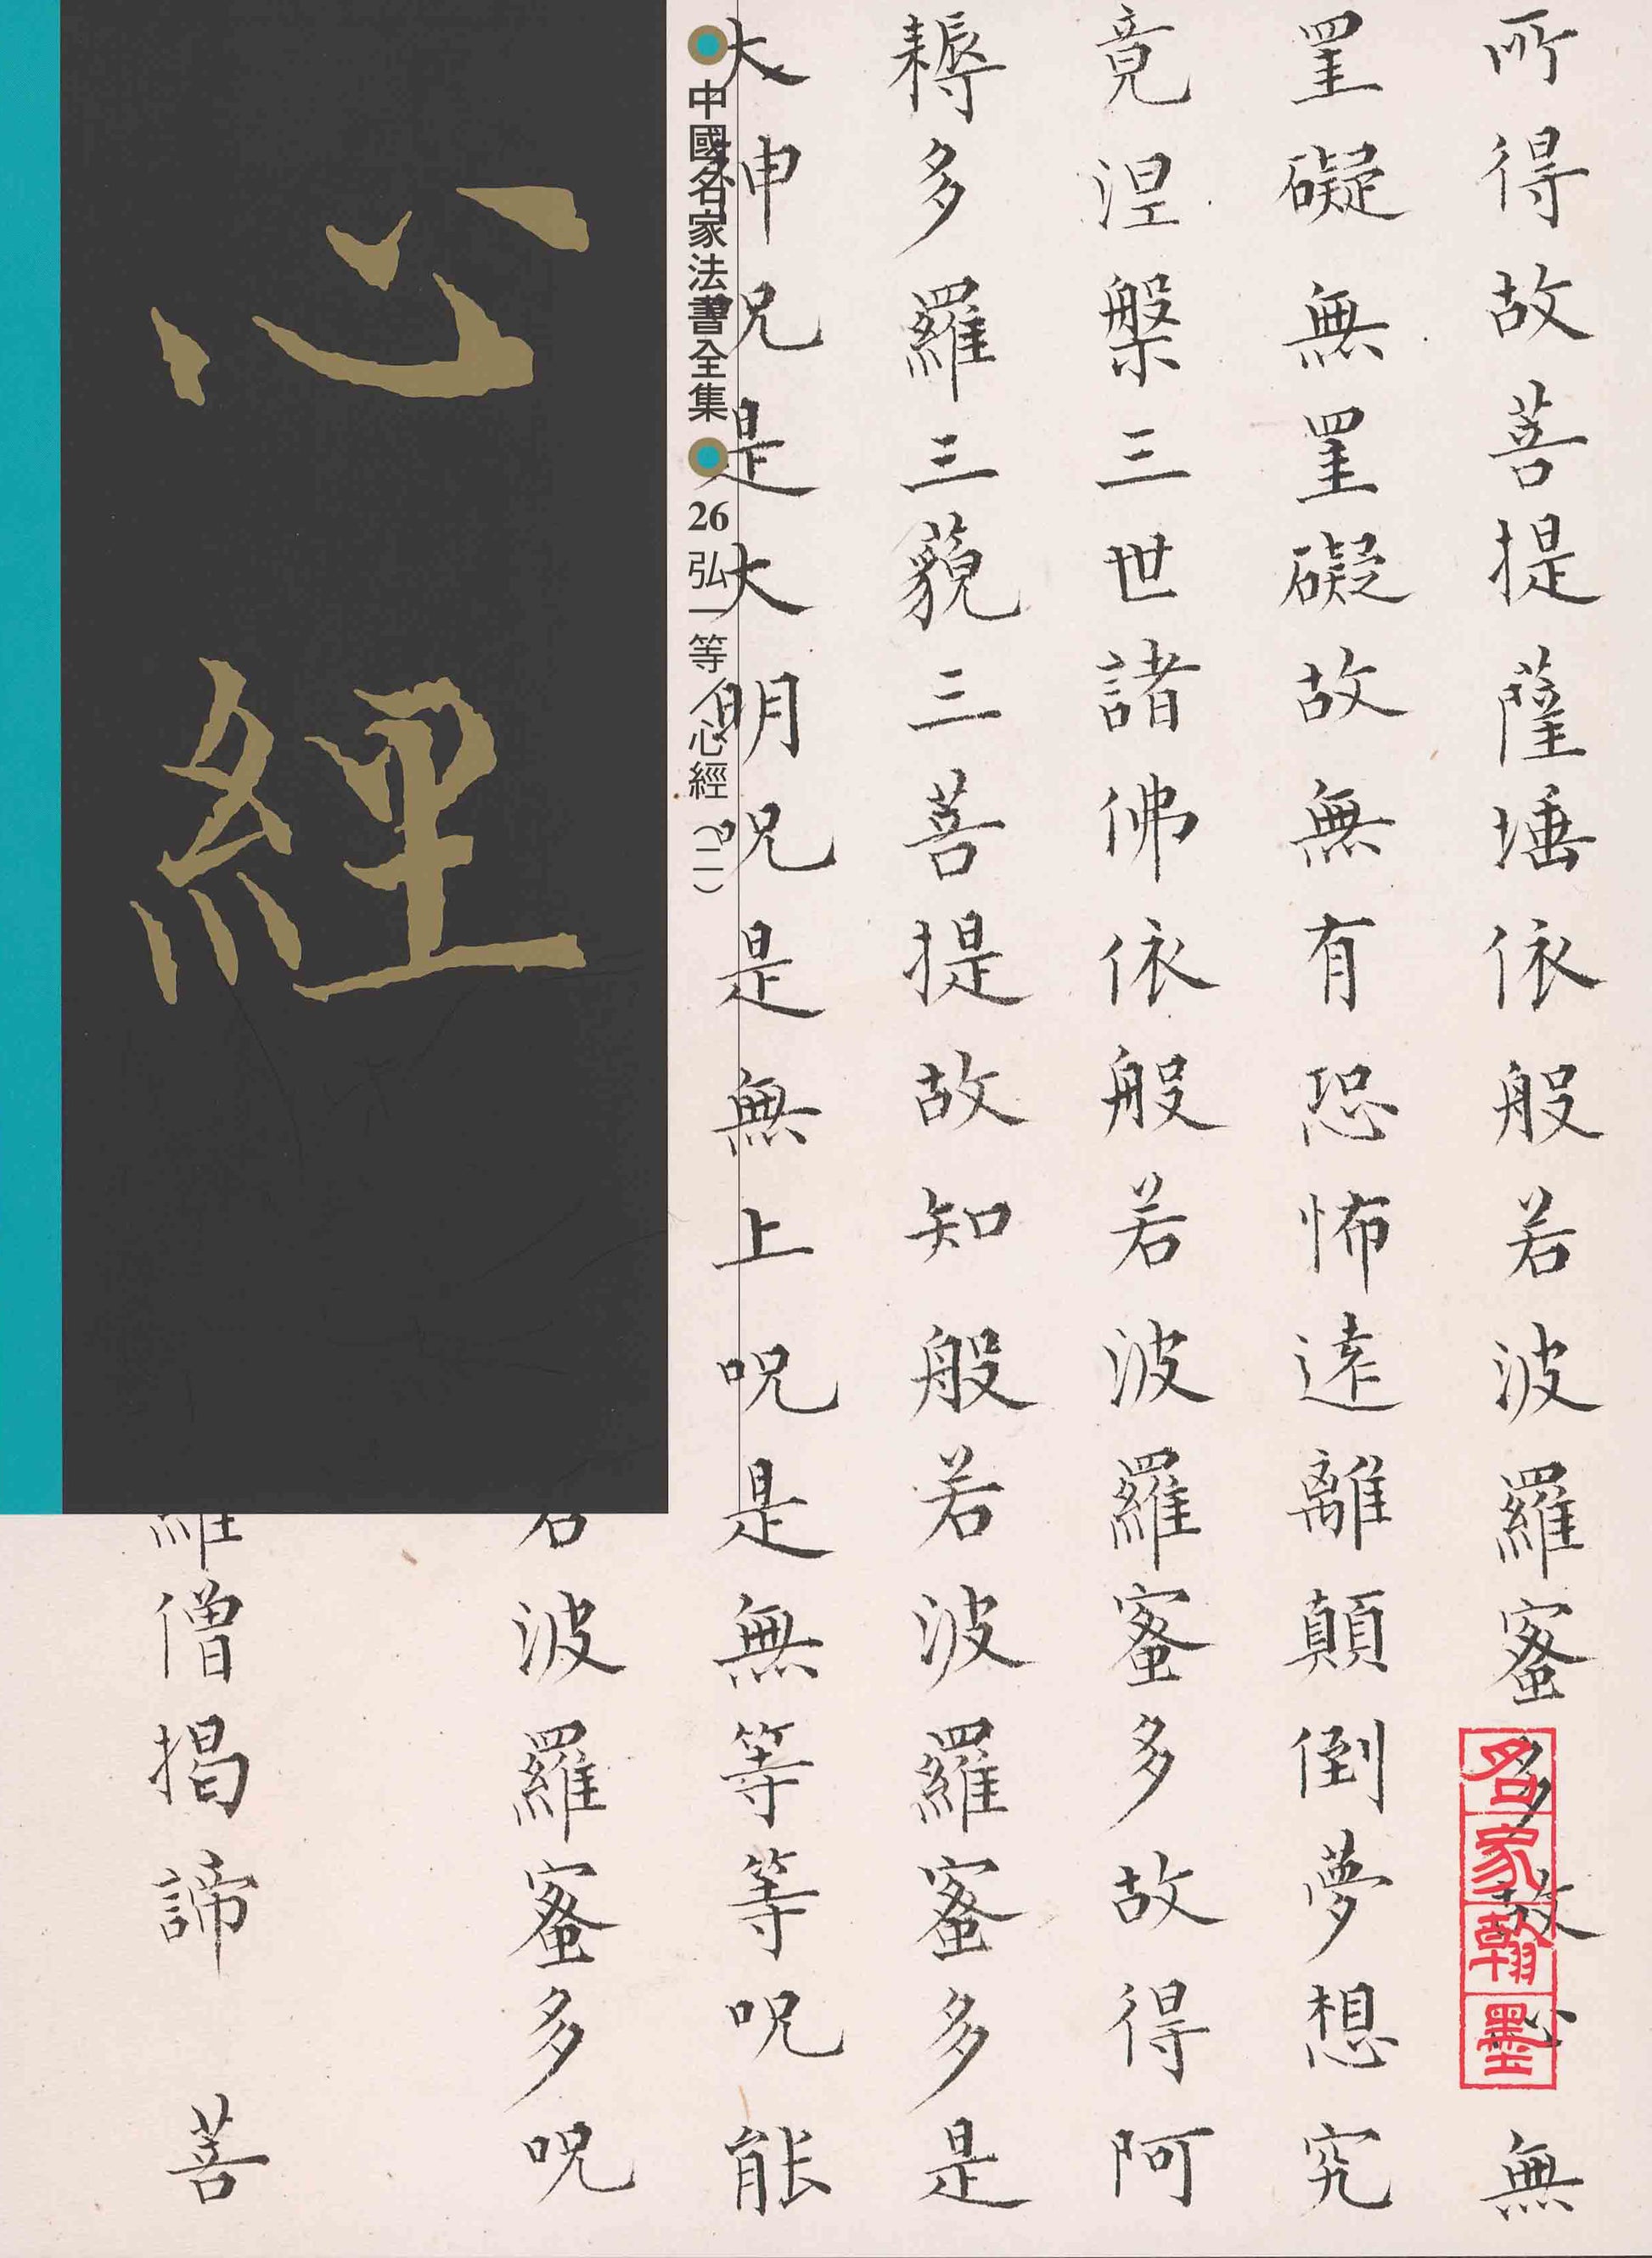 心經
中國名家法書全集 26 弘一等人心經（二）
所得故菩提薩埵依般若波羅蜜多故心無
罣礙無罣礙故無有恐怖遠離顛倒夢想究
竟涅槃三世諸佛依般若波羅蜜多故得阿
耨多羅三藐三菩提故知般若波羅蜜多是
大神呪是大明呪是無上呪是無等等呪能
若波羅蜜多呪
羅僧揭諦 菩
名家翰墨